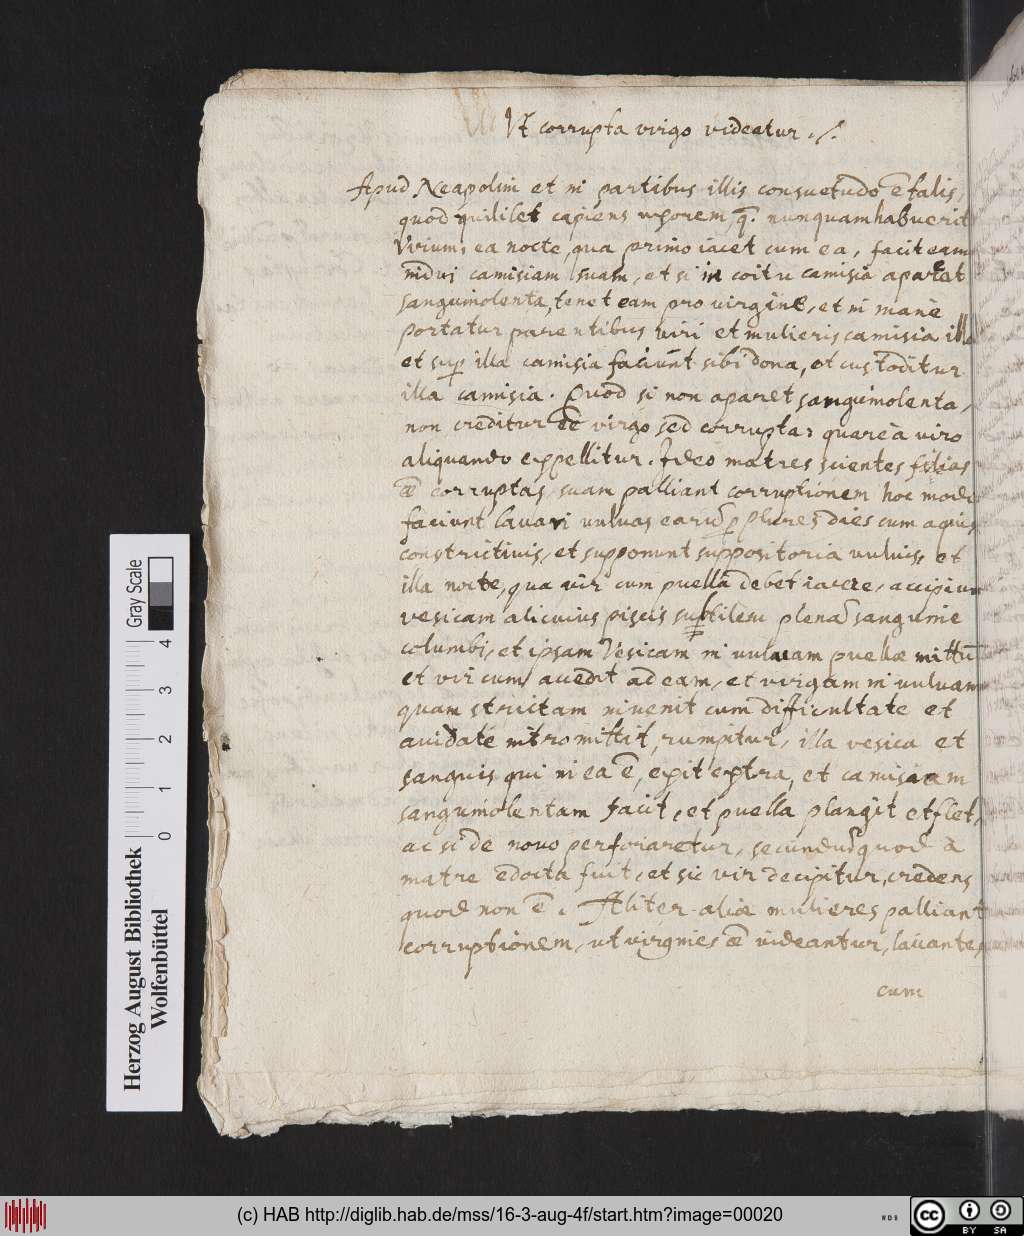 Vt corrupta virgo videatur ./.
Apud Neapolim et in partibus illis consuetudo ē talis,
quod quilibet capiens uxorem, q. nunquam habuerit
Virium, ea nocte, qua primo iacet cum ea, facit eam
indui camisiam suam, et si in coitu camisia aparet
sanguinolenta, tenet eam pro virgine, et in mane
portatur parentibus viri et mulieris camisia illa
et sup illa camisia faciunt sibi dona, et custoditur
illa camisia. Quod si non aparet sanguinolenta,
non creditur ēē virgo sed corrupta, quare à viro
aliquando expellitur. Ideo matres scientes filias
ēē corruptas, suam palliant corruptionem hoc modo
faciunt lavari vulvas earū p plures dies cum aquis
constrictivis, et supponunt suppositoria vulvis, et
illa nocte, qua vir cum puella debet iacere, accipiun
vesicam alicuius piscis subtilem plenā sanguine
columbi, et ipsam Vesicam in vulvam puellæ mittūt
et vir cum accedit ad eam, et virgam in vulvam
quam strictam invenit cum dificultate et
aviditate intromittit, rumpitur, illa vesica et
sanguis qui in ea ē, exit extra, et camisiam
sanguinolentam facit, et puella plangit et flet,
ac si de novo perforaretur, secundū quod à
matre edocta fuit, et sic vir decipitur, credens
quod non ē. Aliter aliæ mulieres palliant
corruptionem, ut virgines ēē videantur, lavantes
cum
Gray Scale
0 1 2 3 4
Herzog August Bibliothek
Wolfenbüttel
(c) HAB http://diglib.hab.de/mss/16-3-aug-4f/start.htm?image=00020
WDB
cc BY SA